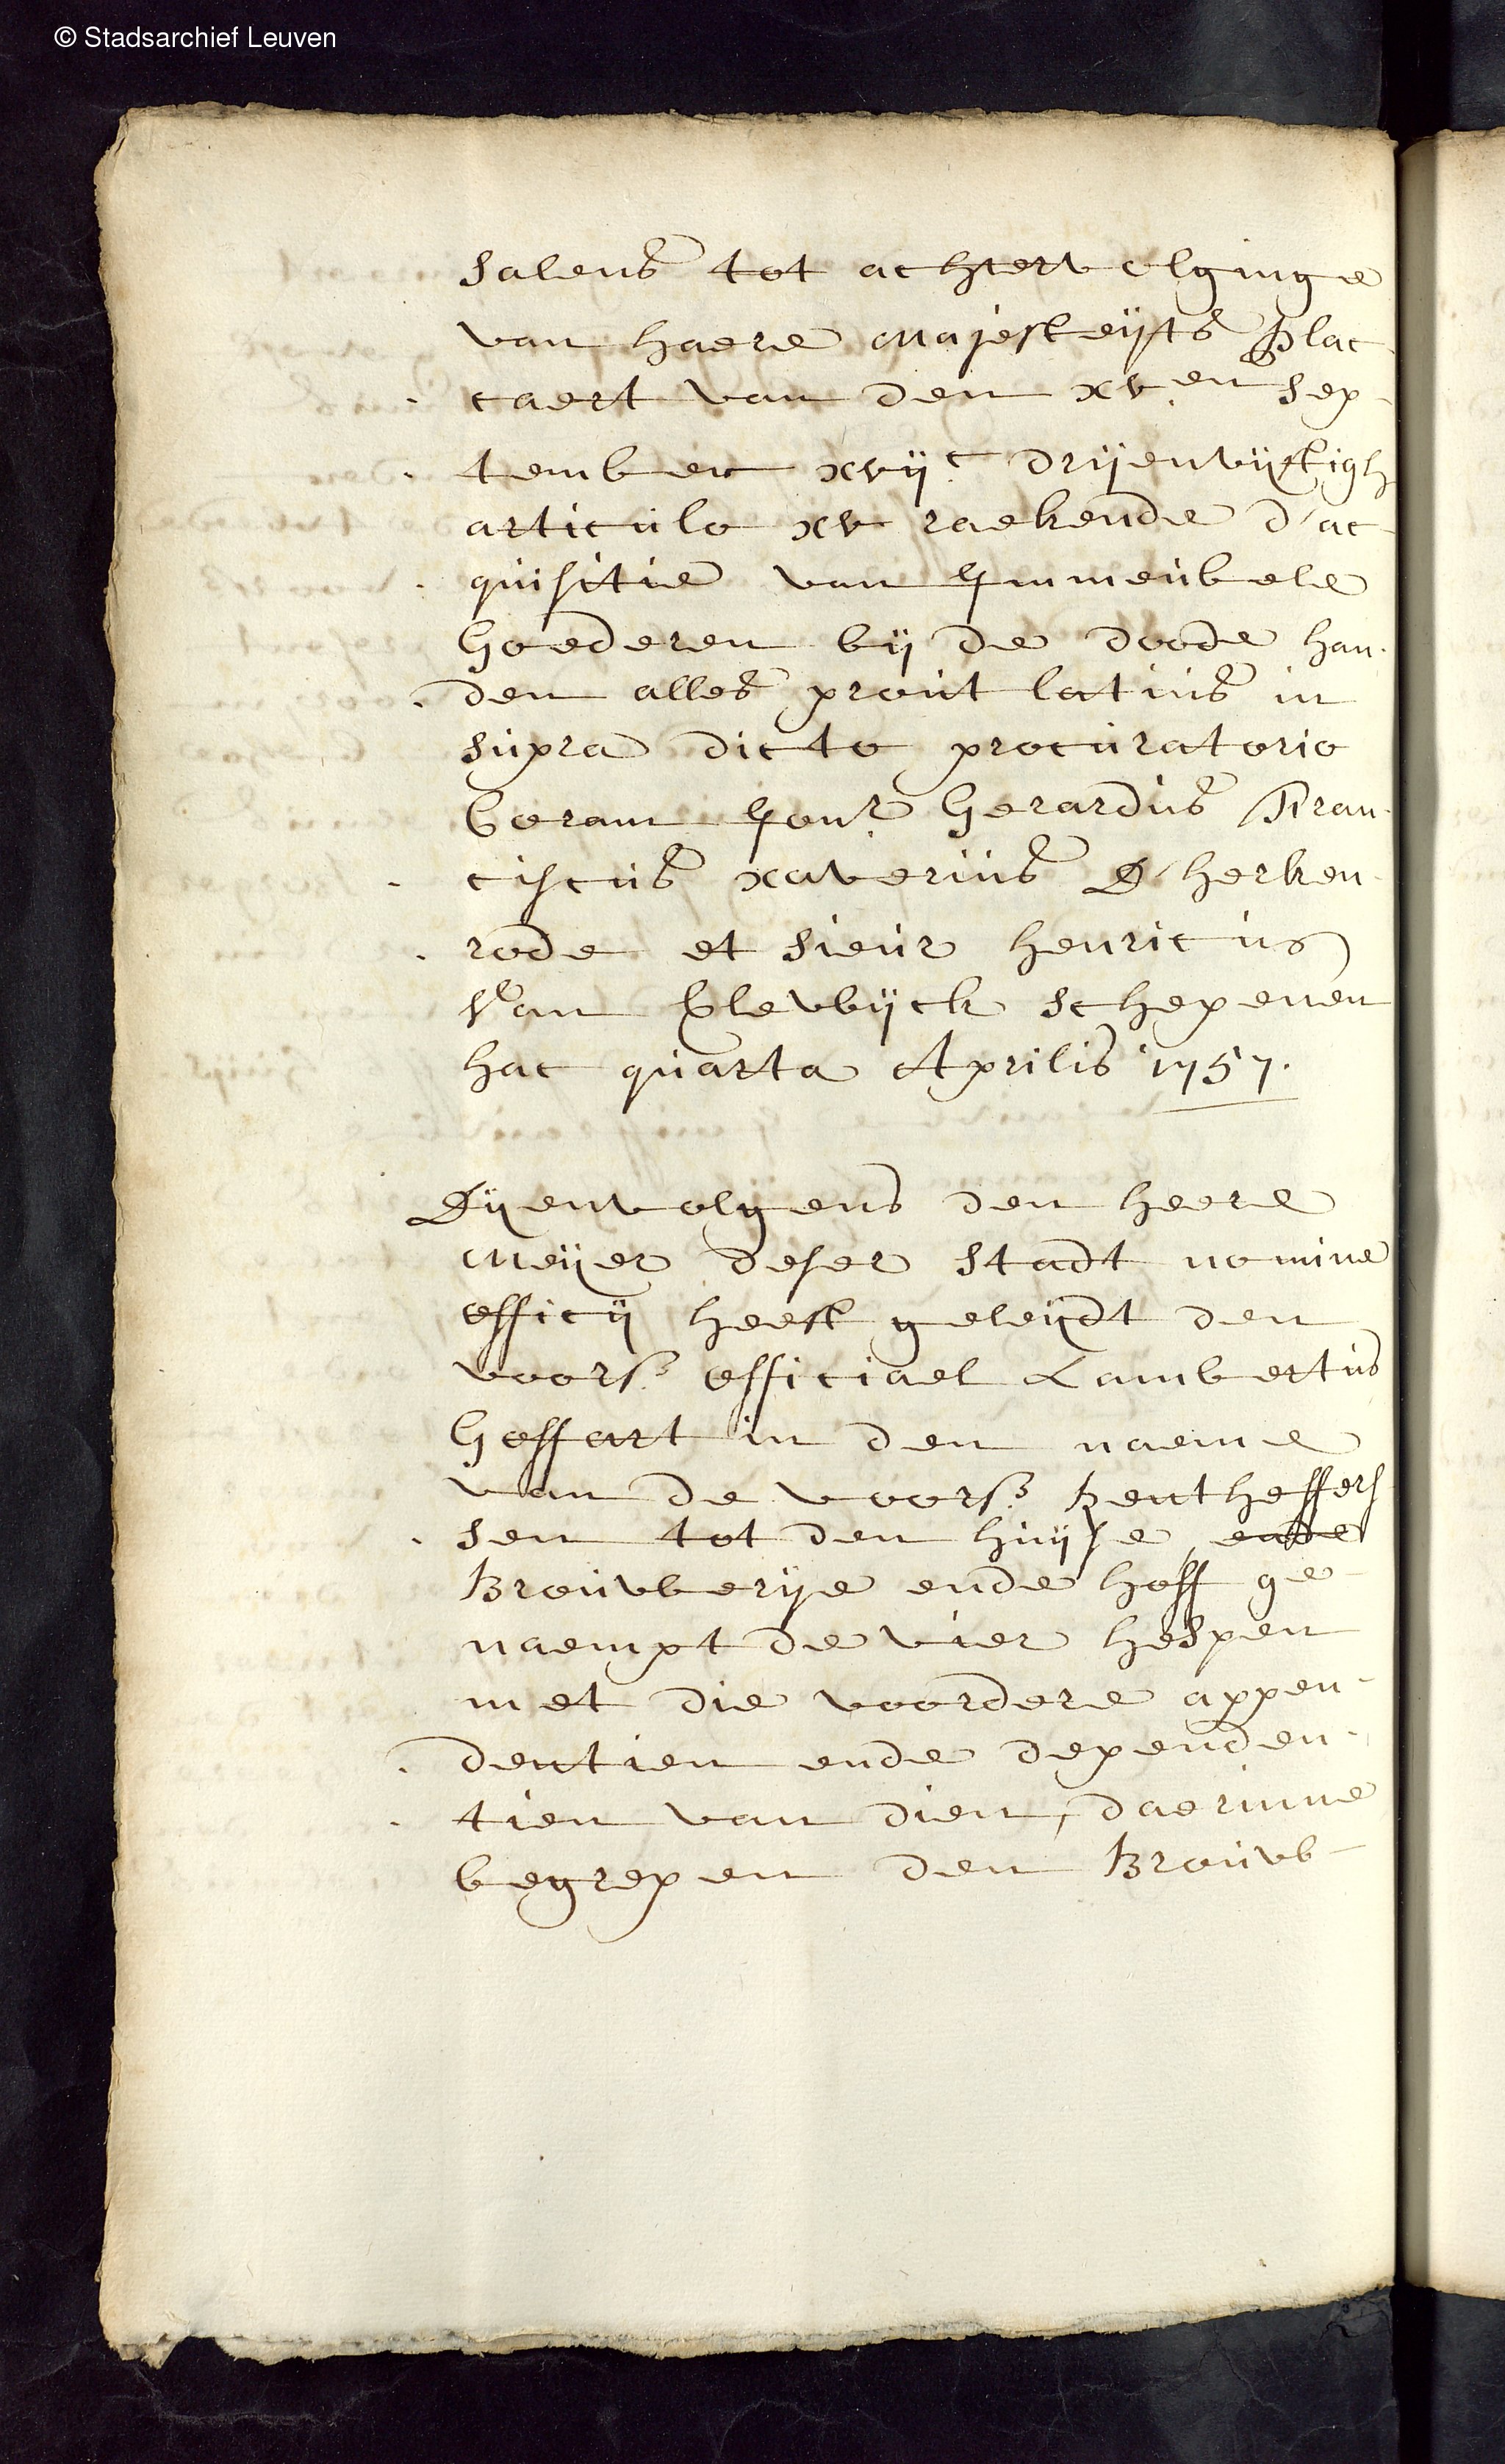 © Stadsarchief Leuven
salens tot achtervolginge
van haere Majesteijts Plac-
caert van den xv.en Sep-
tember xvijc. drijenvijftigh
articulo xv raekende d'ac-
quisitie van Immeubele
Goederen bij de doode han-
den alles prout latius in
supra dicto procuratorio
Coram Jonr. Gerardus Fran-
ciscus xaverius D'herken-
rode et sieur henricus
Van Elewijck schepenen
hac quarta Aprilis 1757.
Dijenvolgens den heere
Meijer deser stadt nomine
officij heeft geleijdt den
voors. officiael Lambertus
Goffart in den naeme
van de voors. Rentheffers-
sen tot den huijse, ende
Brouwerije ende hoff ge-
naempt de vier hespen
met die voordere appen-
dentien ende dependen-
tien van dien, daerinne
begrepen den Brouw-